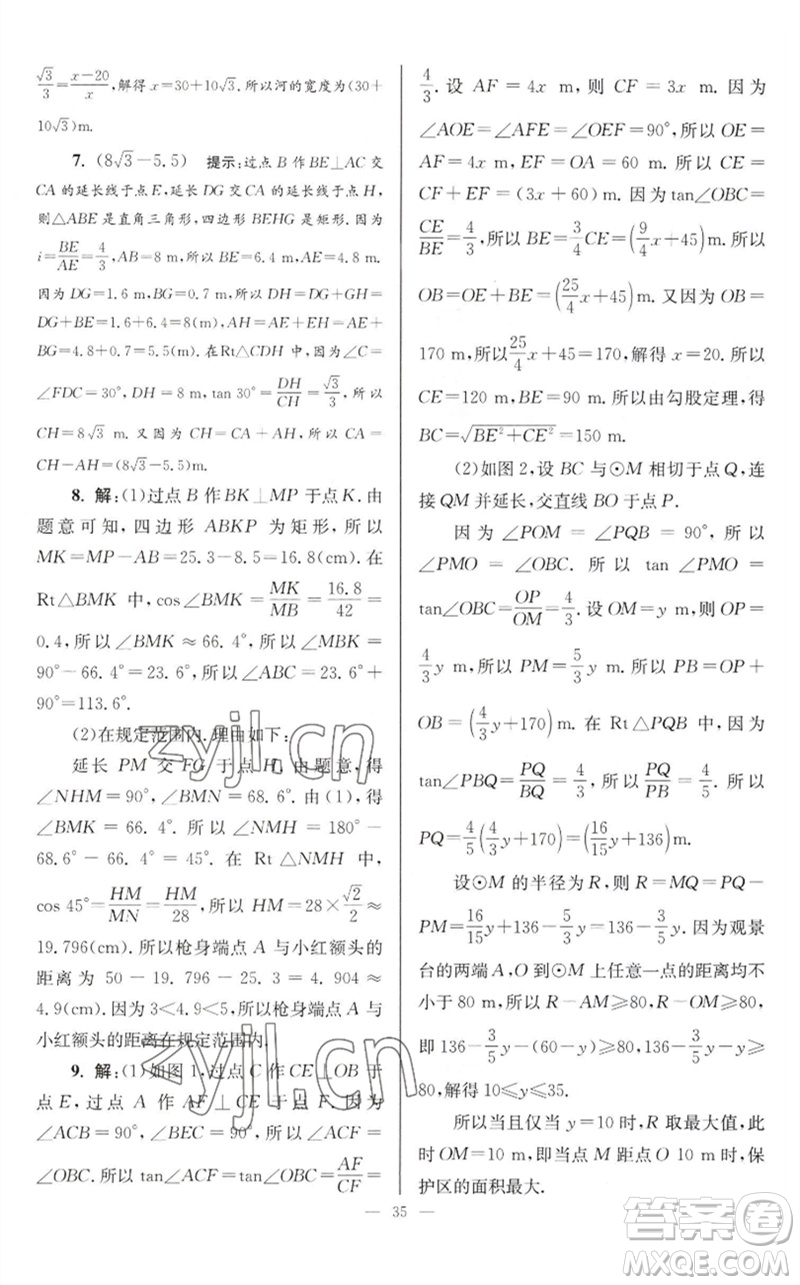 √3/3=(x-20)/x,解得 x=30+10√3.所以河的宽度为(30+
10√3)m.
7. (8√3-5.5) 提示:过点 B 作 BE⊥AC 交
CA 的延长线于点 E,延长 DG 交 CA 的延长线于点 H,
则△ABE 是直角三角形,四边形 BEHG 是矩形.因为
i=BE/AE=4/3,AB=8 m,所以 BE=6.4 m,AE=4.8 m.
因为 DG=1.6 m,BG=0.7 m,所以 DH=DG+GH=
DG+BE=1.6+6.4=8(m),AH=AE+EH=AE+
BG=4.8+0.7=5.5(m).在Rt△CDH 中,因为∠C=
∠FDC=30°,DH=8 m,tan 30°=DH/CH=√3/3,所以
CH=8√3 m.又因为 CH=AC+AH,所以 AC=
CH-AH=(8√3-5.5)m.
8. 解:(1)过点 B 作 BK⊥MP 于点 K.由
题意可知,四边形 ABKP 为矩形,所以
MK=MP-AB=25.3-8.5=16.8(cm).在
Rt△BMK 中,cos∠BMK=MK/MB=16.8/42=
0.4,所以∠BMK≈66.4°,所以∠MBK=
90°-66.4°=23.6°,所以∠ABC=23.6°+
90°=113.6°.
(2)在规定范围内.理由如下:
延长 PM 交 FG 于点 H.由题意,得
∠NHM=90°,∠BMN=68.6°.由(1),得
∠BMK=66.4°.所以∠NMH=180°-
68.6°-66.4°=45°.在 Rt△NMH 中,
cos 45°=HM/MN=HM/28,所以 HM=28×√2/2≈
19.796(cm).所以枪身端点 A 与小红额头的
距离为 50-19.796-25.3=4.904≈
4.9(cm).因为 3<4.9<5,所以枪身端点 A 与
小红额头的距离在规定范围内.
9. 解:(1)如图 1,过点 C 作 CE⊥OB 于
点 E,过点 A 作 AF⊥CE 于点 F.因为
∠ACB=90°,∠BEC=90°,所以∠ACF=
∠OBC.所以 tan∠ACF=tan∠OBC=AF/CF=
4/3.设 AF=4x m,则 CF=3x m.因为
∠AOE=∠AFE=∠OEF=90°,所以 OE=
AF=4x m,EF=OA=60 m.所以 CE=
CF+EF=(3x+60)m.因为 tan∠OBC=
CE/BE=4/3,所以 BE=3/4CE=(9/4x+45)m.所以
OB=OE+BE=(25/4x+45)m.又因为 OB=
170 m,所以25/4x+45=170,解得 x=20.所以
CE=120 m,BE=90 m.由勾股定理,得
BC=√(BE²+CE²)=150 m.
(2)如图 2,设 BC 与⊙M 相切于点 Q,连
接 QM 并延长,交直线 BO 于点 P.
因为∠POM=∠PQB=90°,所以
∠PMO=∠OBC.所以 tan∠PMO=
tan∠OBC=OP/OM=4/3.设 OM=y m,则 OP=
4/3y m.所以 PM=5/3y m.所以 PB=OP+
OB=(4/3y+170)m.在 Rt△PQB 中,因为
tan∠PBQ=PQ/BQ=4/3,所以PQ/PB=4/5.所以
PQ=4/5(4/3y+170)=(16/15y+136)m.
设⊙M 的半径为 R,则 R=MQ=PQ-
PM=16/15y+136-5/3y=136-3/5y.因为观景
台的两端 A,O 到⊙M 上任意一点的距离均不
小于 80 m,所以 R-AM≥80,R-OM≥80,
即 136-3/5y-(60-y)≥80,136-3/5y-y≥
80,解得 10≤y≤35.
所以当且仅当 y=10 时,R 取最大值,此
时 OM=10 m,即当点 M 距点 O 10 m 时,保
护区的面积最大.
— 35 —
zyjl.cn
zyjl.cn
答案圈
MXQE.COM